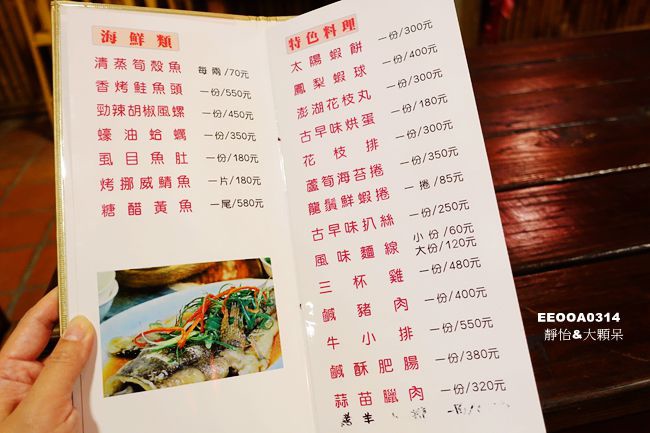 海鮮類
清蒸筍殼魚 每兩/70元
香烤鮭魚頭 一份/550元
勁辣胡椒風螺 一份/450元
蠔油蛤蠣 一份/350元
虱目魚肚 一份/180元
烤挪威鯖魚 一片/180元
糖醋黃魚 一尾/580元
特色料理
太陽蝦餅 一份/300元
鳳梨蝦球 一份/400元
澎湖花枝丸 一份/300元
古早味烘蛋 一份/180元
花枝排 一份/300元
蘆筍海苔捲 一份/350元
龍鬚鮮蝦捲 一捲/85元
古早味扒絲 一份/250元
風味麵線 小份/60元
大份/120元
三杯雞 一份/480元
鹹豬肉 一份/400元
牛小排 一份/550元
鹹酥肥腸 一份/380元
蒜苗臘肉 一份/320元
EEOOA0314
靜怡&大顆呆